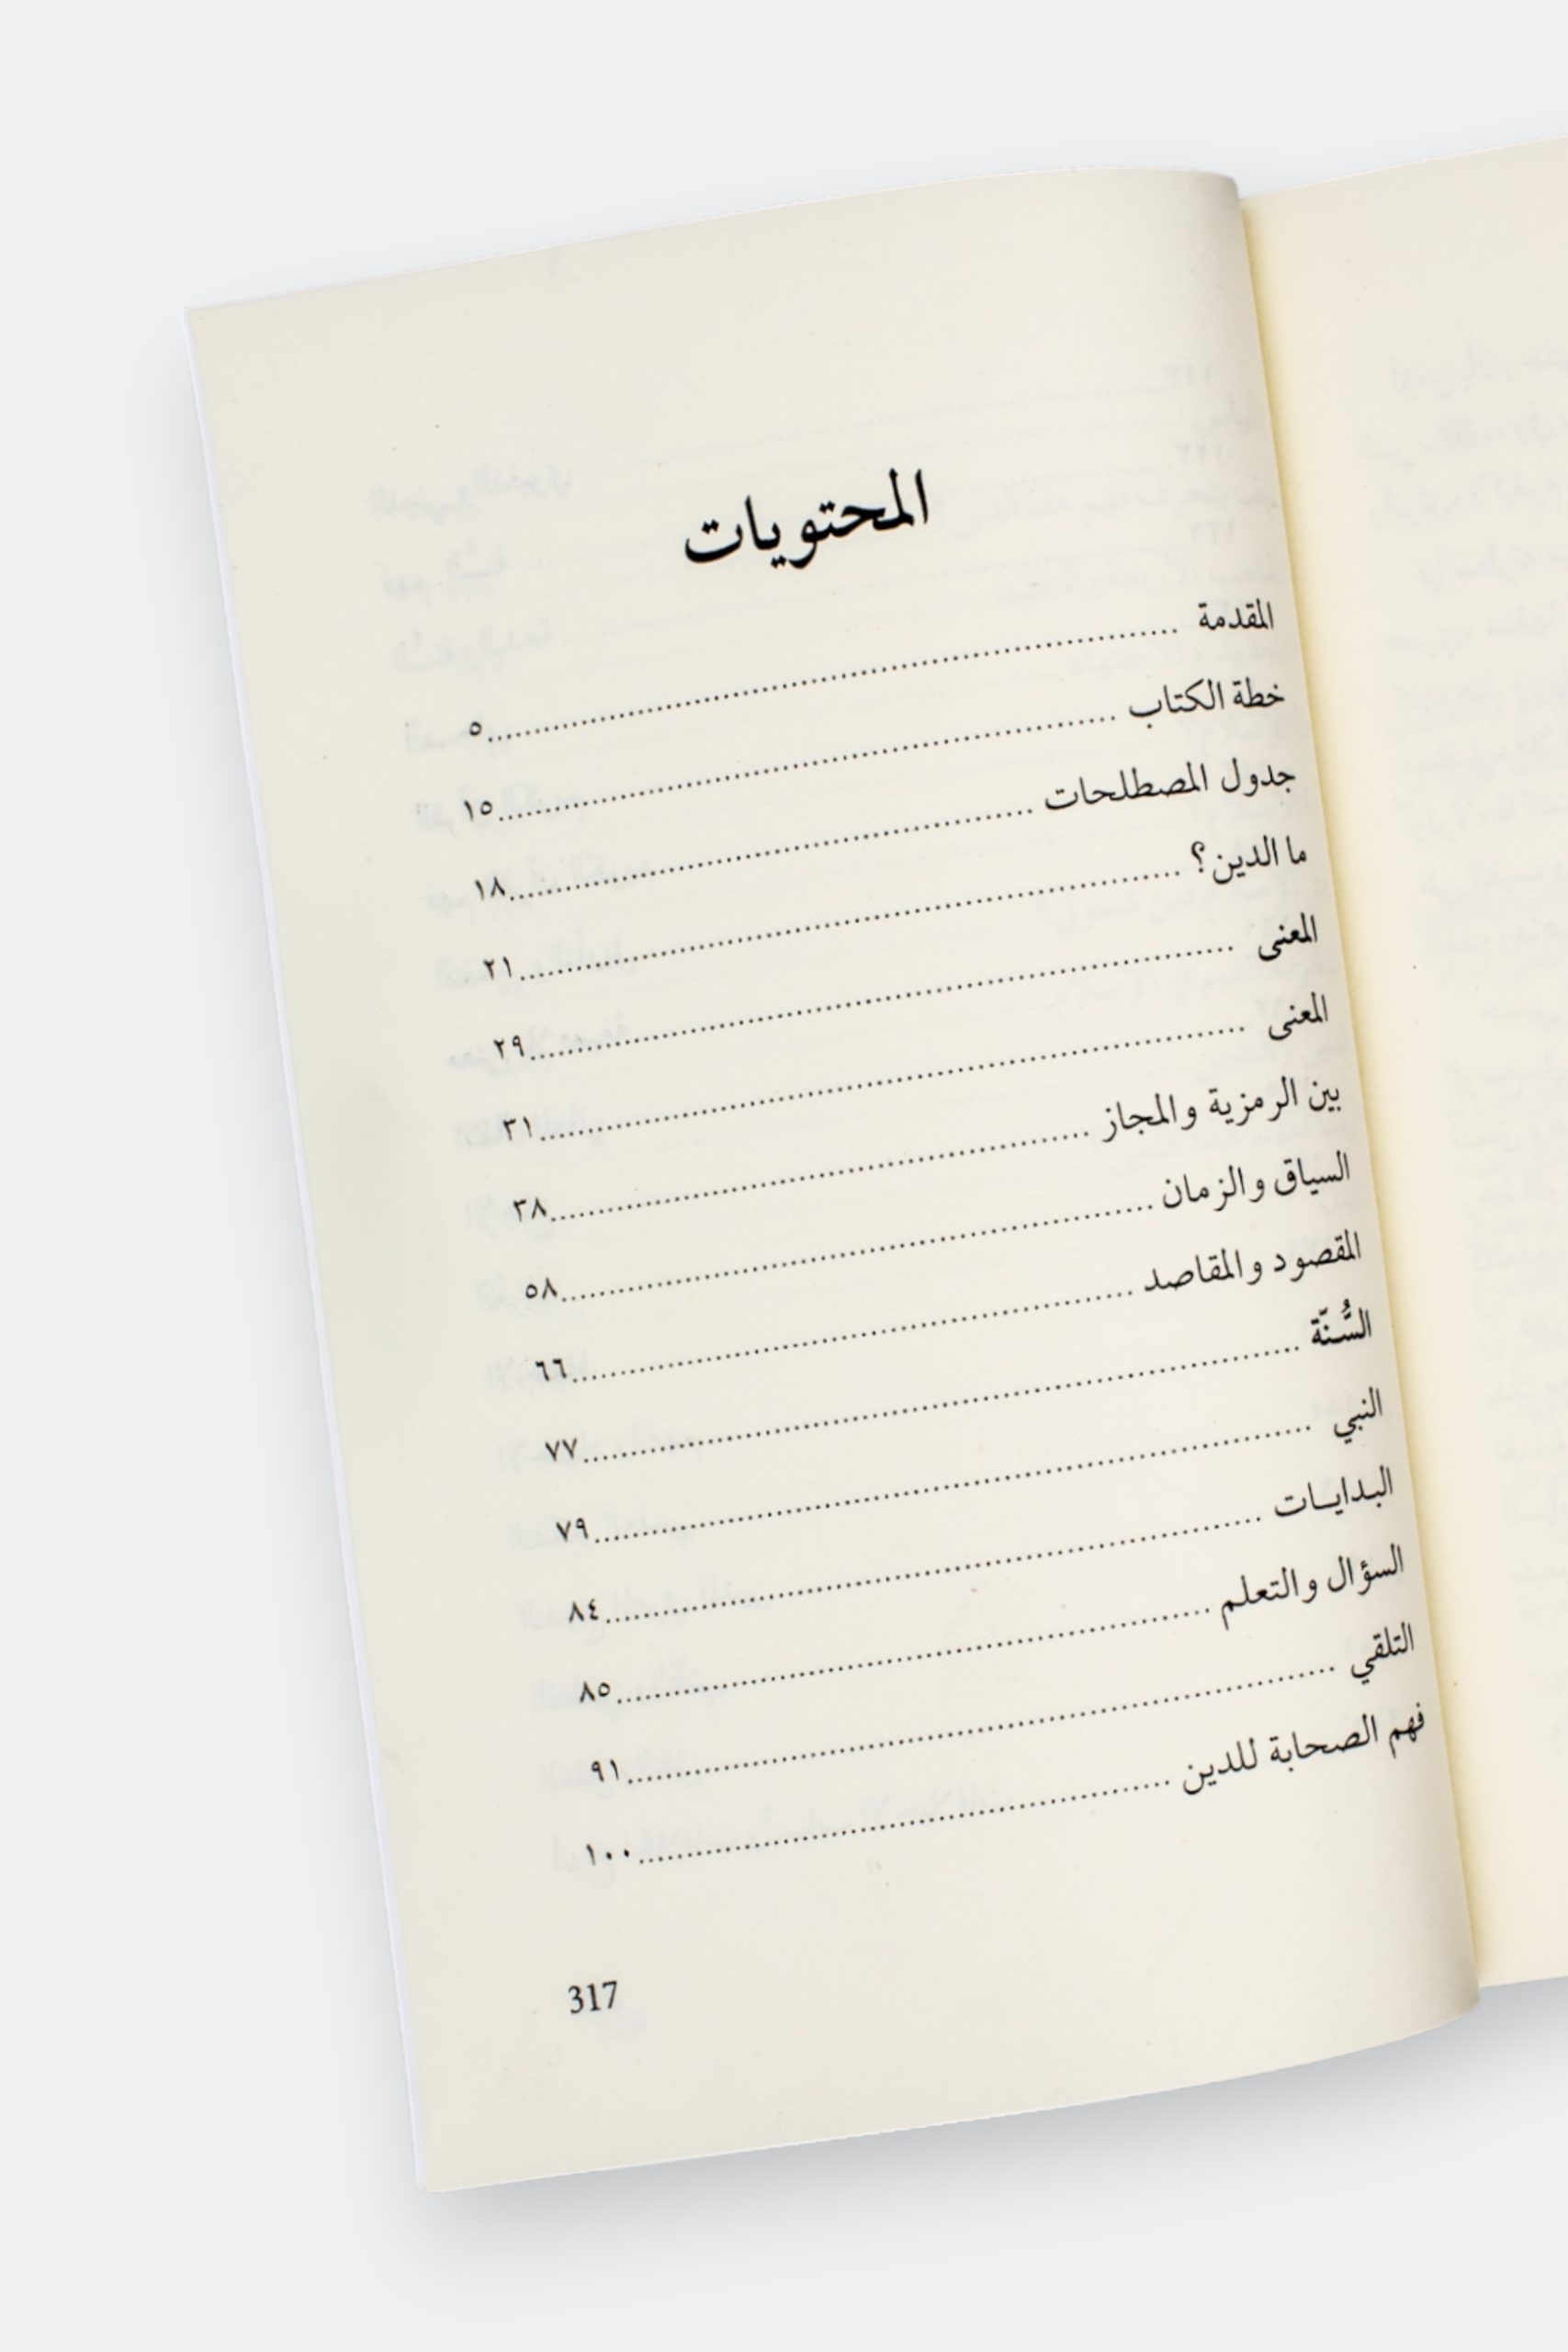 المحتويات
المقدمة ..........٥
خطة الكتاب ..........١٥
جدول المصطلحات ..........١٨
ما الدين؟ ..........٢١
المعنى ..........٢٩
المعنى ..........٣١
بين الرمزية والمجاز ..........٣٨
السياق والزمان ..........٥٨
المقصود والمقاصد ..........٦٦
السُّنّة ..........٧٧
النبي ..........٧٩
البدايات ..........٨٤
السؤال والتعلم ..........٨٥
التلقي ..........٩١
فهم الصحابة للدين ..........١٠٠
317